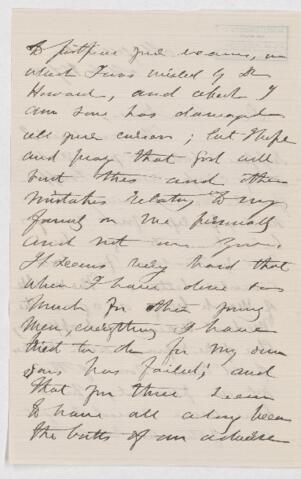 to postpone your exams, in
which I was misled by Dr
Howard, and which I
am sure has damaged
all your cursus; but I hope
and pray that God will
visit this and other
mistakes relating to my
family on me personally
and not on you.
It seems very hard that
when I have done so
much for other young
men, everything I have
tried to do for my own
sons has failed; and
that for three years
I have all along been
the butt of an adverse